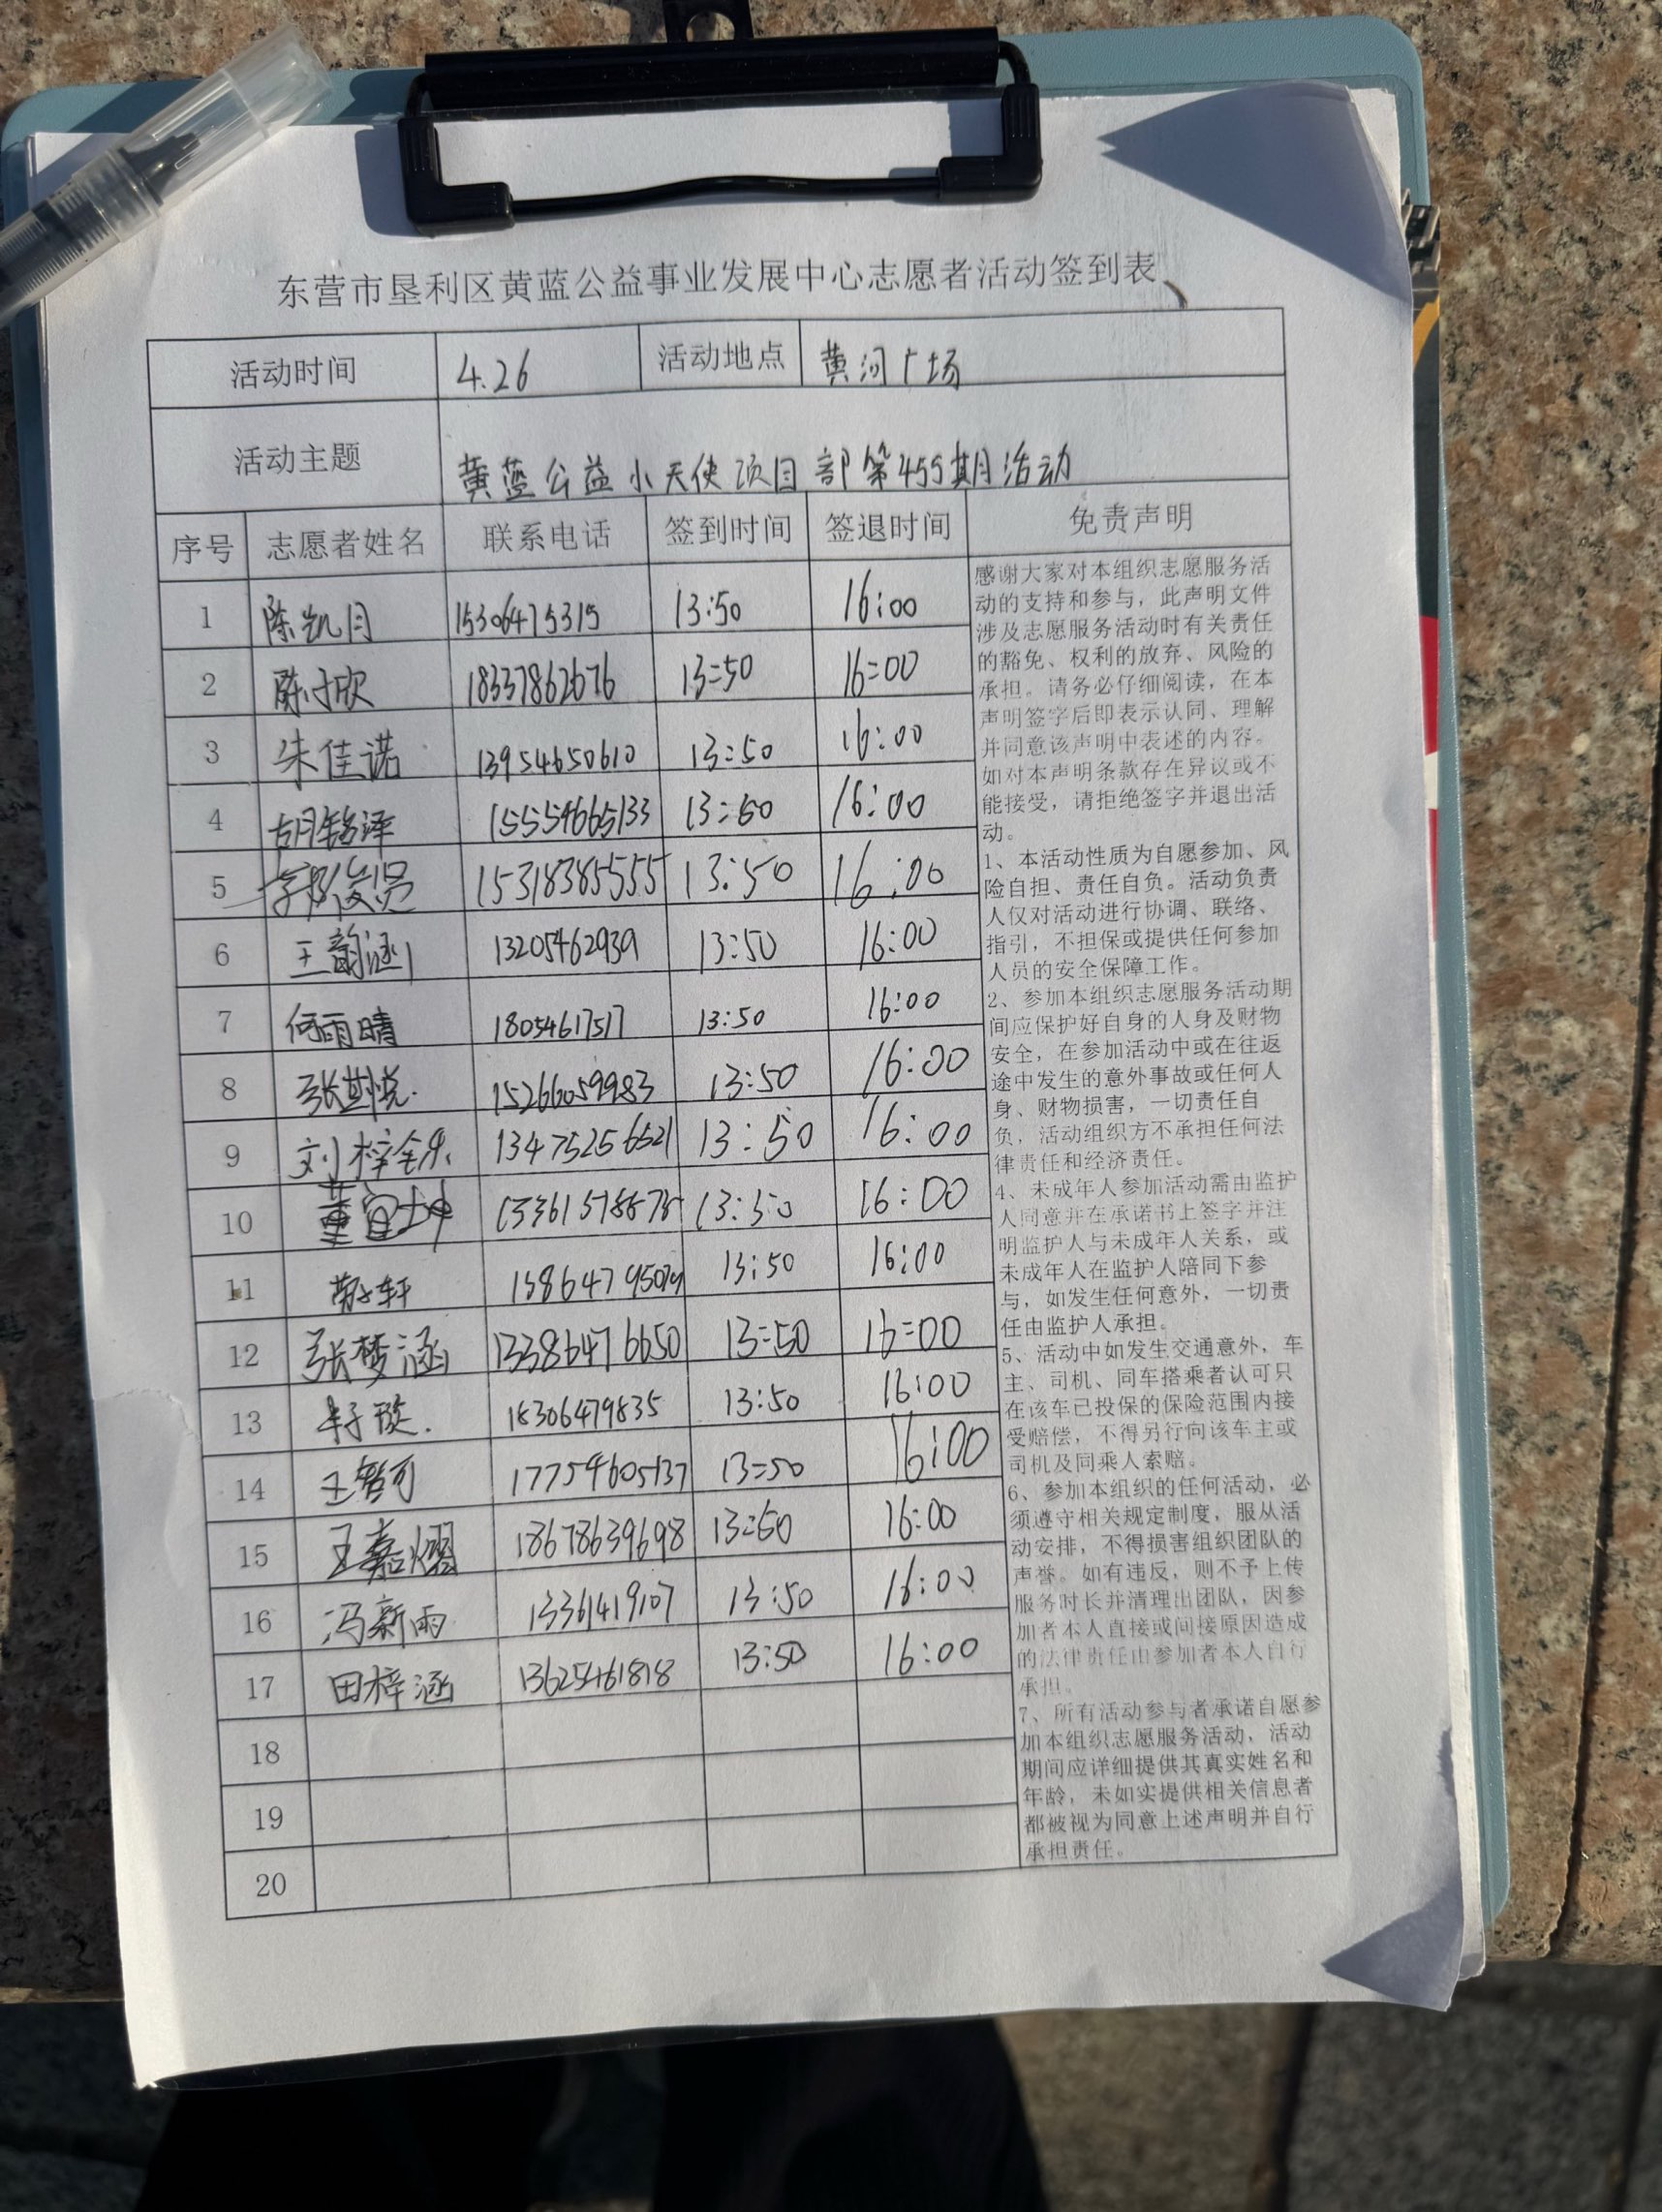 东营市垦利区黄蓝公益事业发展中心志愿者活动签到表
活动时间 4.26 活动地点 黄河广场
活动主题 黄蓝公益小天使项目部第455期活动
序号 志愿者姓名 联系电话 签到时间 签退时间 免责声明
1 陈凯月 15306475315 13:50 16:00
2 陈欣 18337862676 13:50 16:00
3 朱佳诺 13954650610 13:50 16:00
4 胡铭泽 15554665133 13:50 16:00
5 15318385555 13:50 16:00
6 王韵涵 13205462939 13:50 16:00
7 何雨晴 18054617517 13:50 16:00
8 张悦 15266059983 13:50 16:00
9 刘梓 13475256521 13:50 16:00
10 董 13:50 16:00
11 轩 13:50 16:00
12 张梦涵 13386476650 13:50 16:00
13 18306479835 13:50 16:00
14 王可 17754605137 13:50 16:00
15 王嘉熠 18678639698 13:50 16:00
16 冯新雨 13361419107 13:50 16:00
17 田梓涵 13625461818 13:50 16:00
18
19
20
感谢大家对本组织志愿服务活
动的支持和参与，此声明文件
涉及志愿服务活动时有关责任
的豁免、权利的放弃、风险的
承担。请务必仔细阅读，在本
声明签字后即表示认同、理解
并同意该声明中表述的内容。
如对本声明条款存在异议或不
能接受，请拒绝签字并退出活
动。
1、本活动性质为自愿参加、风
险自担、责任自负。活动负责
人仅对活动进行协调、联络、
指引，不担保或提供任何参加
人员的安全保障工作。
2、参加本组织志愿服务活动期
间应保护好自身的人身及财物
安全，在参加活动中或在往返
途中发生的意外事故或任何人
身、财物损害，一切责任自
负，活动组织方不承担任何法
律责任和经济责任。
4、未成年人参加活动需由监护
人同意并在承诺书上签字并注
明监护人与未成年人关系，或
未成年人在监护人陪同下参
与，如发生任何意外，一切责
任由监护人承担。
5、活动中如发生交通意外，车
主、司机、同车搭乘者认可只
在该车已投保的保险范围内接
受赔偿，不得另行向该车主或
司机及同乘人索赔。
6、参加本组织的任何活动，必
须遵守相关规定制度，服从活
动安排，不得损害组织团队的
声誉。如有违反，则不予上传
服务时长并清理出团队，因参
加者本人直接或间接原因造成
的法律责任由参加者本人自行
承担。
7、所有活动参与者承诺自愿参
加本组织志愿服务活动，活动
期间应详细提供其真实姓名和
年龄，未如实提供相关信息者
都被视为同意上述声明并自行
承担责任。